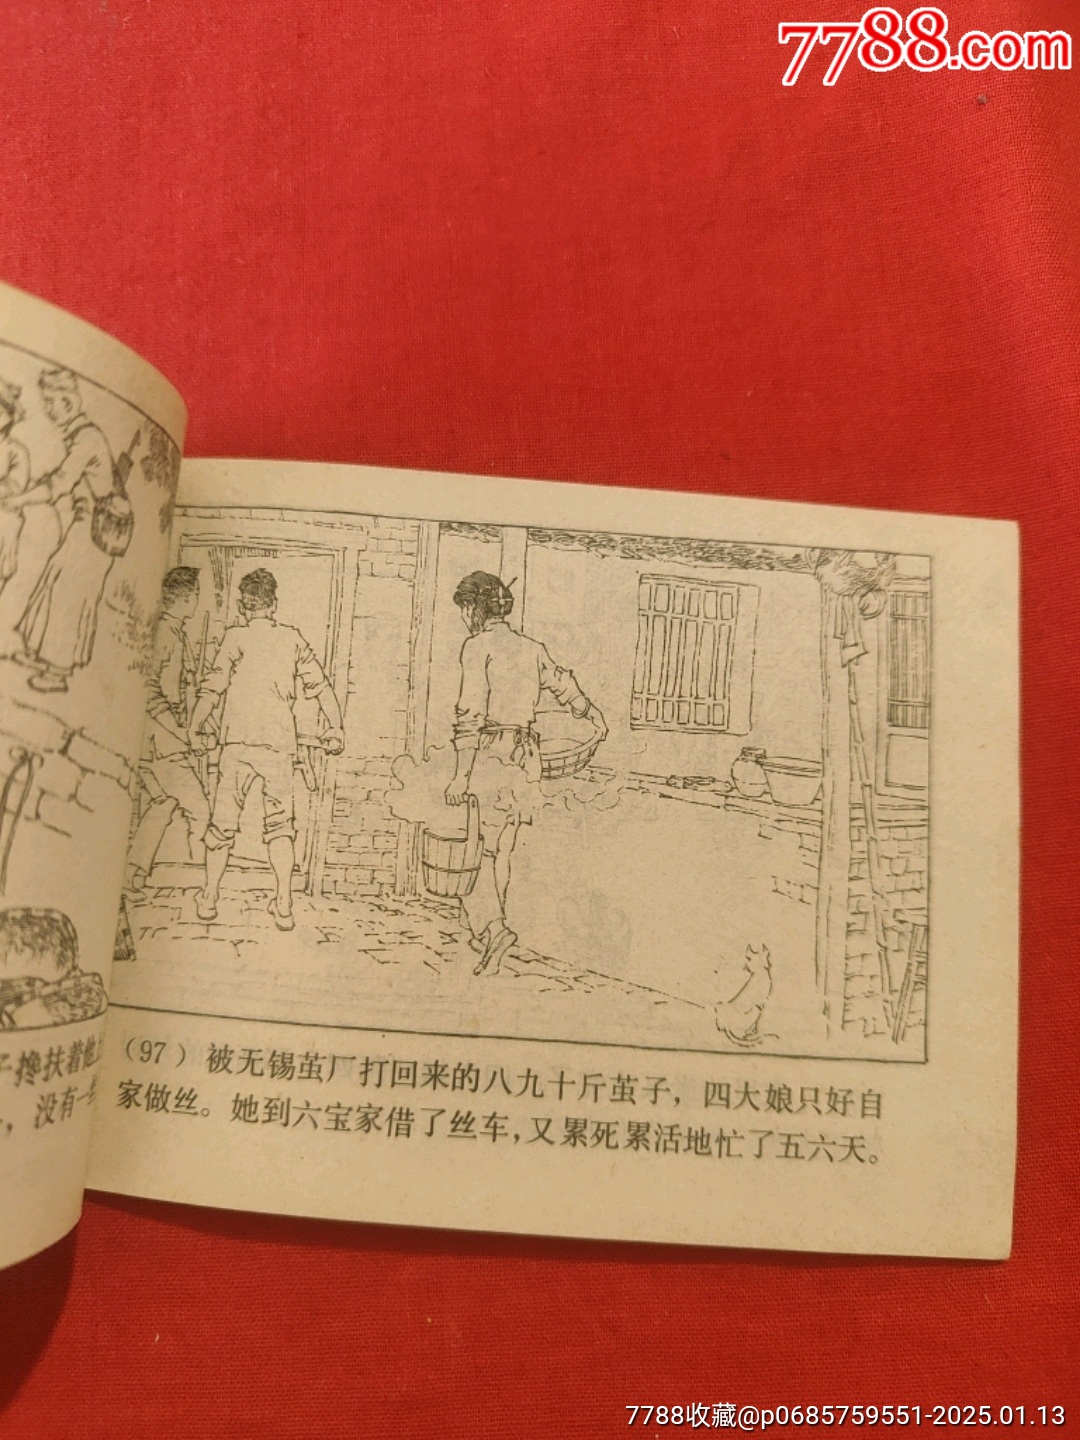 7788.com
搀扶着他
，没有一
（97）被无锡茧厂打回来的八九十斤茧子，四大娘只好自
家做丝。她到六宝家借了丝车，又累死累活地忙了五六天。
7788收藏@p0685759551-2025.01.13